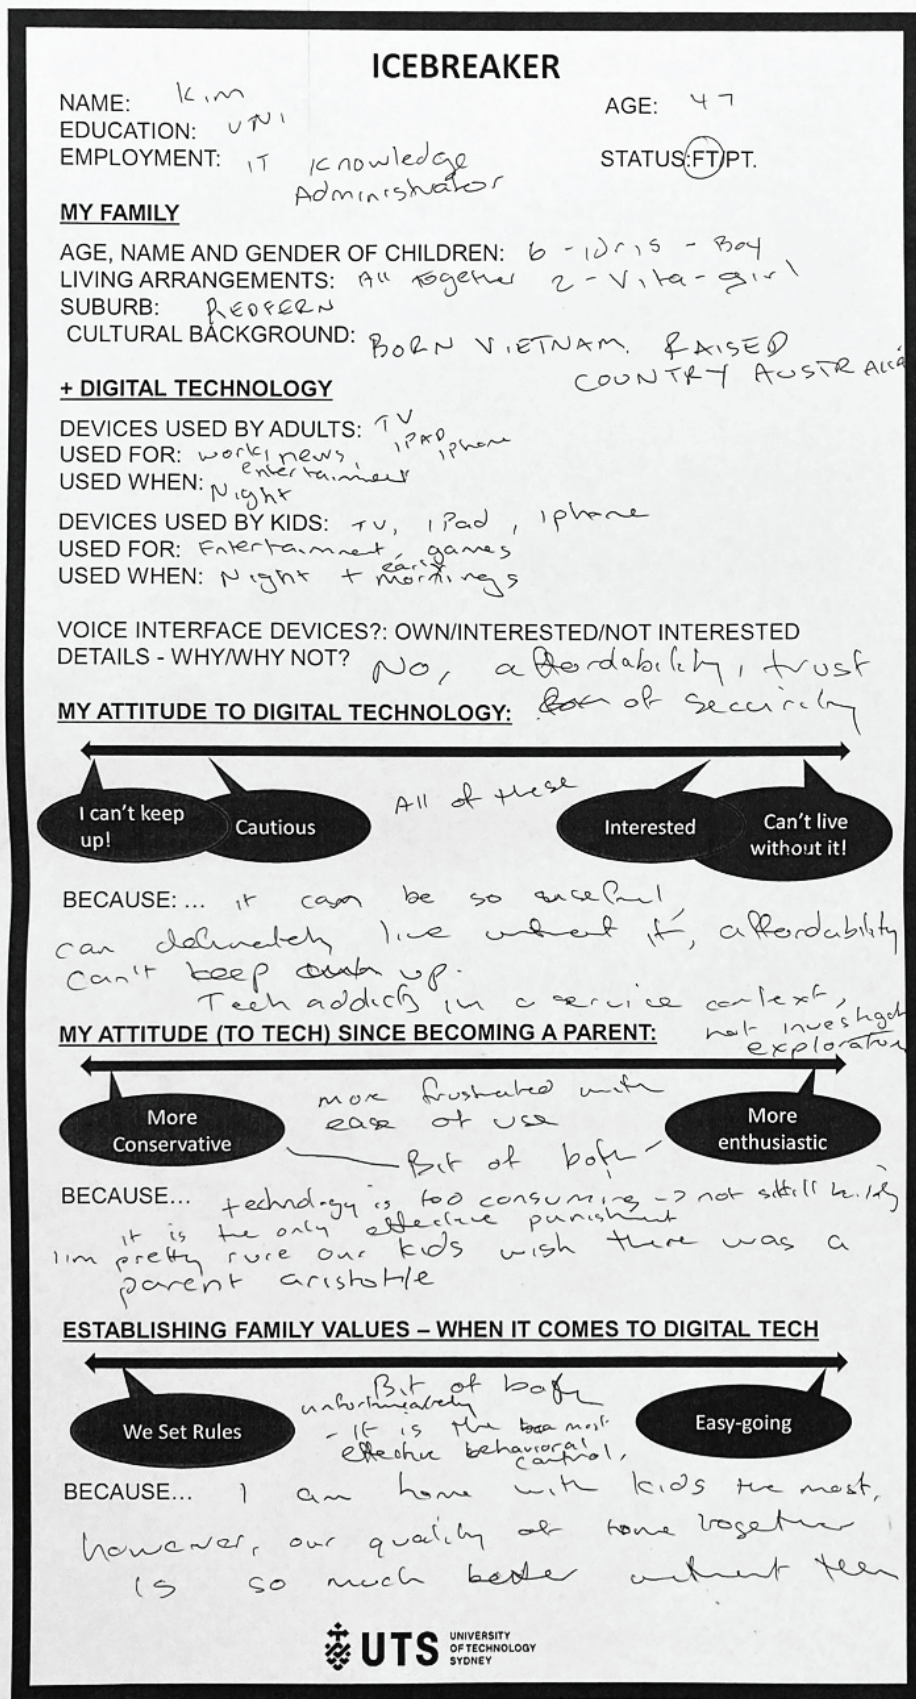 ICEBREAKER
NAME: Kim AGE: 47
EDUCATION: UNI
EMPLOYMENT: IT Knowledge STATUS:FT/PT.
Administrator
MY FAMILY
AGE, NAME AND GENDER OF CHILDREN: 6 - Idris - Boy
LIVING ARRANGEMENTS: All together 2 - Vita - girl
SUBURB: REDFERN
CULTURAL BACKGROUND: BORN VIETNAM. RAISED
COUNTRY AUSTRALIA
+ DIGITAL TECHNOLOGY
DEVICES USED BY ADULTS: TV
iPAD iphone
USED FOR: work, news,
entertainment
USED WHEN: Night
DEVICES USED BY KIDS: TV, iPad, iphone
USED FOR: Entertainment, games
USED WHEN: Night + early mornings
VOICE INTERFACE DEVICES?: OWN/INTERESTED/NOT INTERESTED
DETAILS - WHY/WHY NOT? No, affordability, trust
MY ATTITUDE TO DIGITAL TECHNOLOGY: of security
All of these
I can't keep
up!
Cautious
Interested
Can't live
without it!
BECAUSE: ... it can be so useful,
can definately live without it, affordability
Can't keep up.
Tech addicts in a service context,
not investigat
exploration
MY ATTITUDE (TO TECH) SINCE BECOMING A PARENT:
more frustrated with
ease of use
More
Conservative
Bit of both
More
enthusiastic
BECAUSE... technology is too consuming -> not
it is the only effective punishment
I'm pretty sure our kids wish there was a
parent aristotle
ESTABLISHING FAMILY VALUES – WHEN IT COMES TO DIGITAL TECH
Bit of both
unfortunately
- it is the most
effective behavioral
control,
We Set Rules
Easy-going
BECAUSE... I am home with kids the most,
however, our quality of time together
is so much better without
UTS UNIVERSITY
OF TECHNOLOGY
SYDNEY